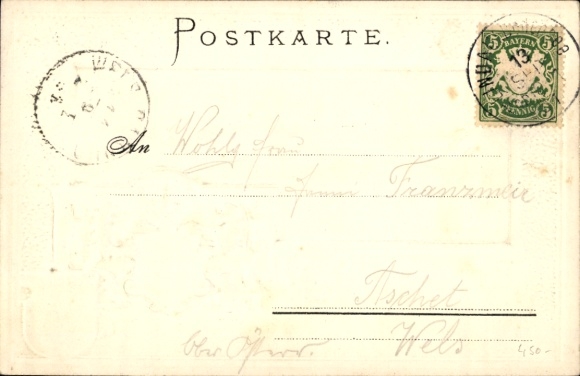 POSTKARTE.
5 BAYERN 5
5 PFENNIG 5
13
An Wohlg. Frau
Franzmeir
Aschet
Wels
Ober Österr.
450.-